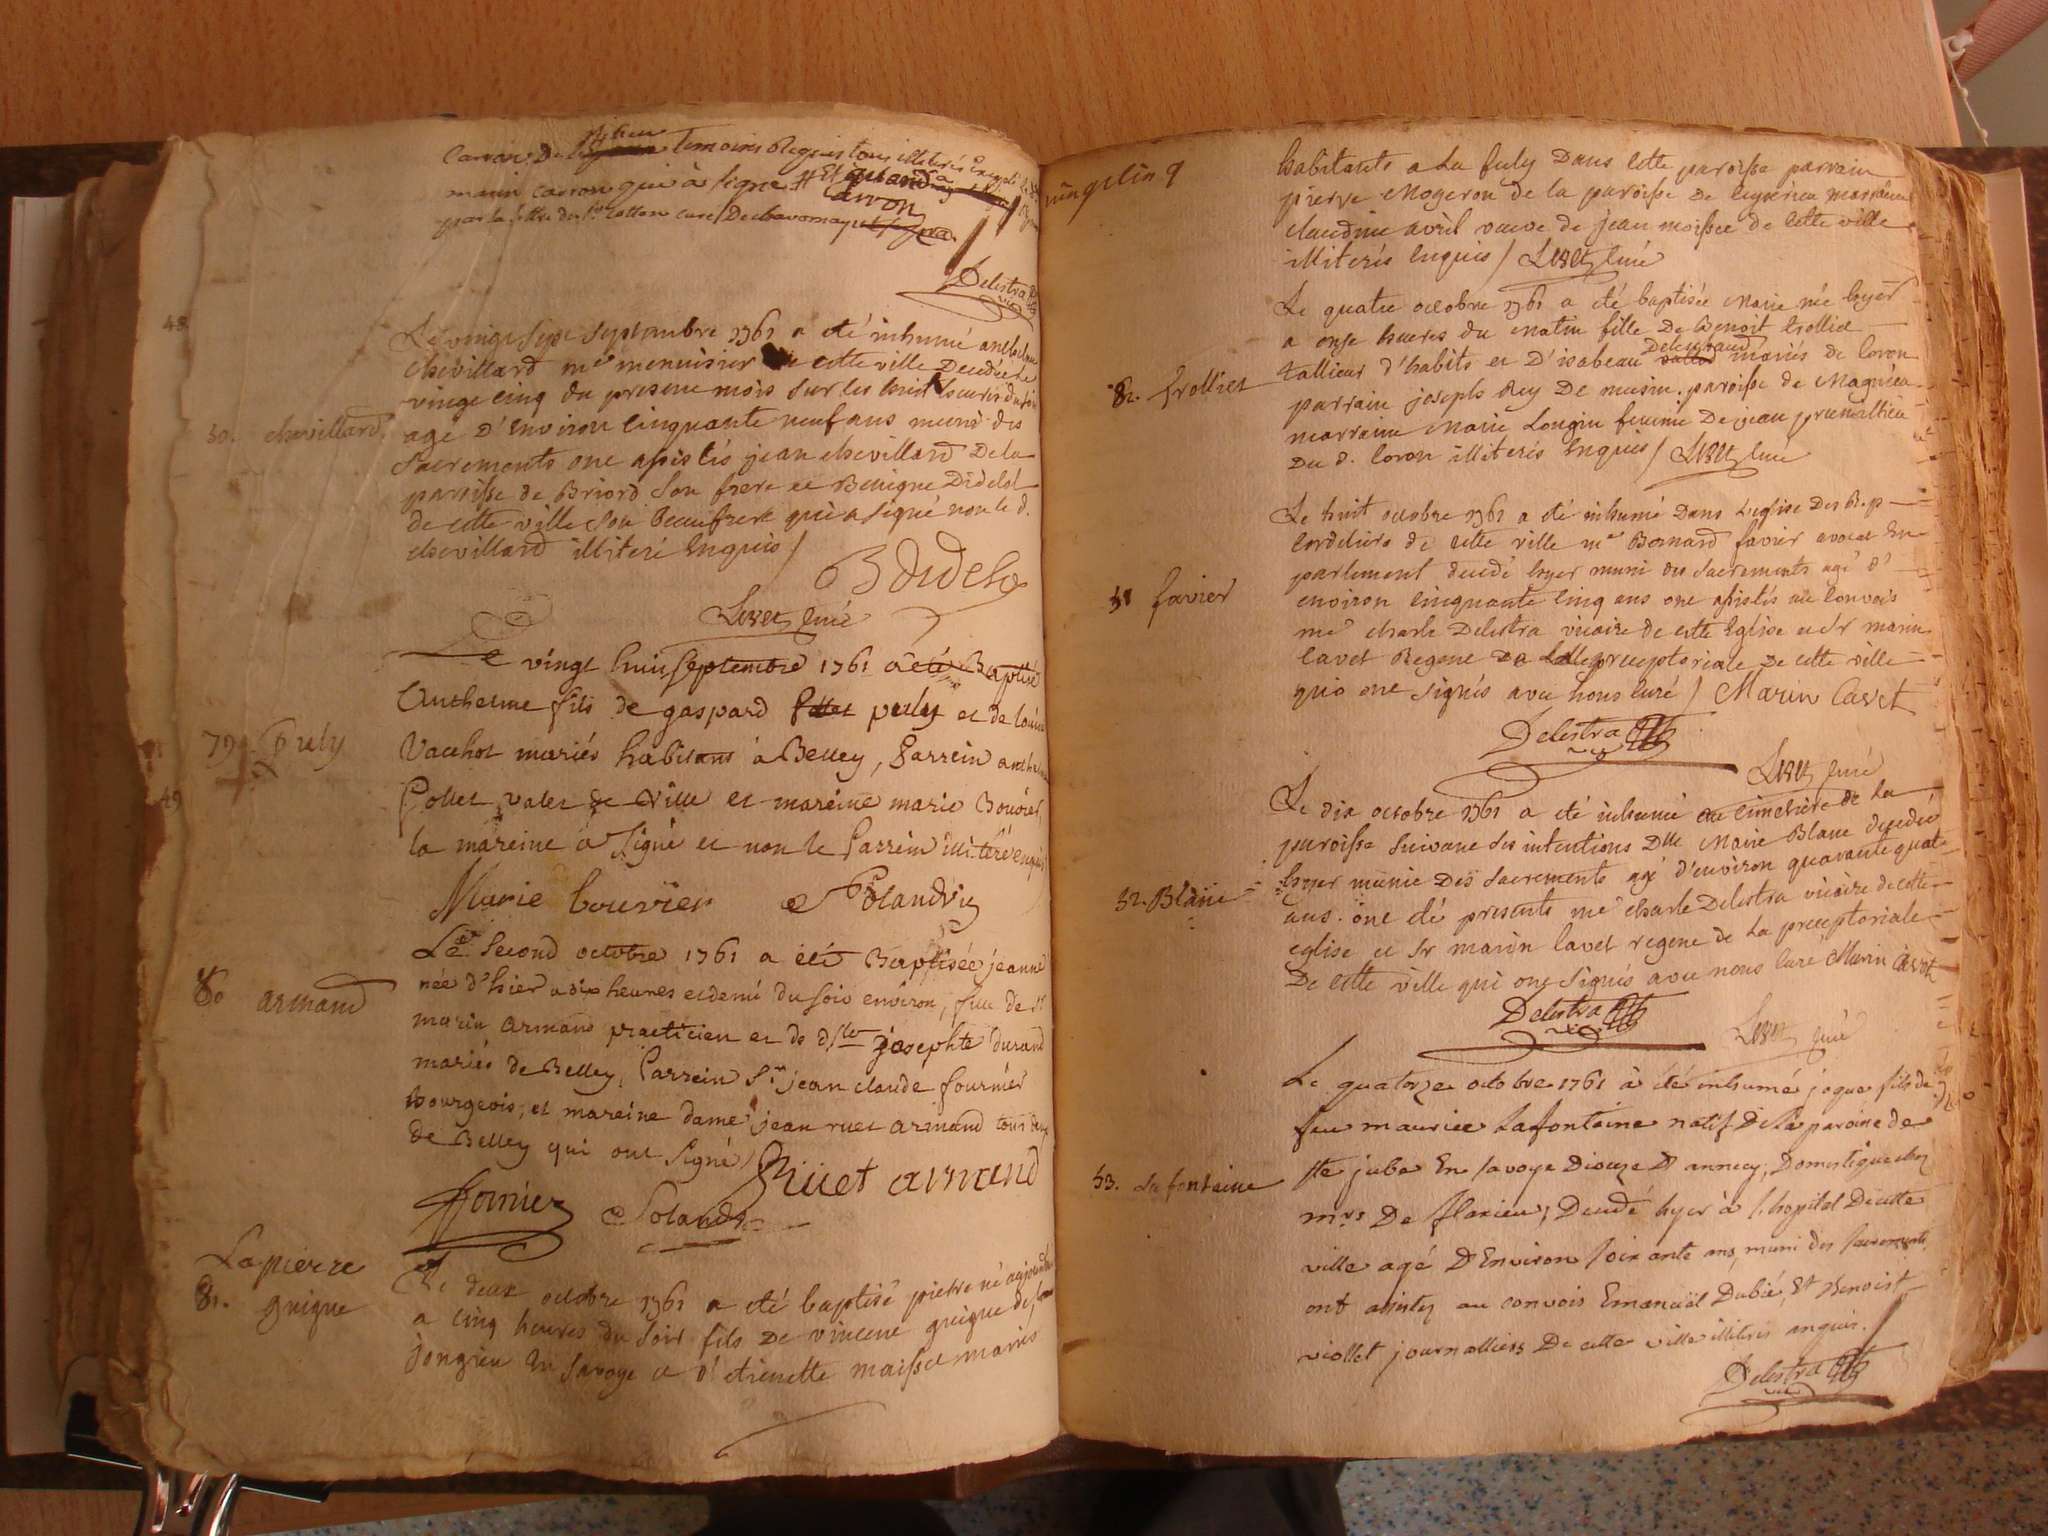 temoins Requis tous
marin carron qui à signé
carron
par la du Sr cotton curé
Delestra
48.
Le vingt sept septembre 1761 a été inhumé anthelme
chevillard me menuisier de cette ville Decedé le
vingt cinq du present mois sur les huit heures du soir
50. chevillard
agé d'Environ cinquante neuf ans muni des
sacrements ont assistés jean chevillard De la
paroisse de Briord son frere et Benigne Didelot
de cette ville son beaufrere qui a signé non le d.
chevillard illiteré Enquis /
B Didelot
curé
Le vingt huit septembre 1761 a été Baptisé
Anthelme fils de gaspard puly et de louise
79. Puly
Vachot mariés habitans à Belley, Parrein anthelme
49
Collet valet de Ville et mareine marie Bouvier,
la mareine a signé et non le Parrein illiteré enquis
Marie bouvier
Le second octobre 1761 a été Baptisée jeanne
80 armand
née d'hier a six heures et demi du soir environ, fille de Sr
marin armand practicien et de dlle josephte durand
mariés de Belley, Parrein Sr jean claude fournier
bourgeois, et mareine dame jean ruet armand tous deux
de Belley qui ont signé /
Ruet armand
fornier
Lapierre
81. guigue
Le deux octobre 1761 a été baptisé pierre né aujourdhui
a cinq heures du soir fils de vincent guigue de
jongieu En savoye et d'etienette maisse mariés
habitants a La fuly Dans cette paroisse parrain
pierre Mogeron de la paroisse De marraine
claudine avril veuve de jean moissee de cette ville
illiterés Enquis / curé
Le quatre octobre 1761 a été baptisée Marie née hyer
a onze heures du matin fille De Benoit trolliet
tallieur d'habits et D'isabeau mariés de Coron
82. trolliet
parrain joseph Rey De musin paroisse de Magnieu
marraine Marie Longin femme De jean
du d. Coron illiterés Enquis / curé
Le huit octobre 1761 a été inhumé Dans l'eglise des R.p
Cordeliers de cette ville me Bernard favier avocat En
parlement decedé hyer muni des sacrements agé d'
51 favier
environ cinquante cinq ans ont assistés au convois
me charle Delestra vicaire de cette Eglise et Sr marin
Cavet Regent De la preceptoriale De cette ville
qui ont signés avec nous curé / Marin Cavet
Delestra
vic
curé
Le dix octobre 1761 a été inhumé au cimetière de la
paroisse suivant ses intentions Dlle Marie Blanc decedée
52. Blanc
hyer munie Des sacrements agé d'environ quarante quatre
ans. ont été presents me charle Delestra vicaire de cette
eglise et Sr marin Cavet regent de la preceptoriale
De cette ville qui ont signés avec nous curé Marin Cavet
Delestra
vic
curé
Le quatorze octobre 1761 à été inhumé fils de
feu maurice Lafontaine natif De la paroisse de
ste En savoye Dioceze D'annecy, Domestique chez
53. Lafontaine
mrs De flaxieu, Decedé hyer à l'hopital De cette
ville agé D'Environ soixante ans, muni des sacrements,
ont assistez au convois Emanuël Dubié, Et Benoist
viollet journalliers De cette ville illiterés enquis. /
Delestra
vic